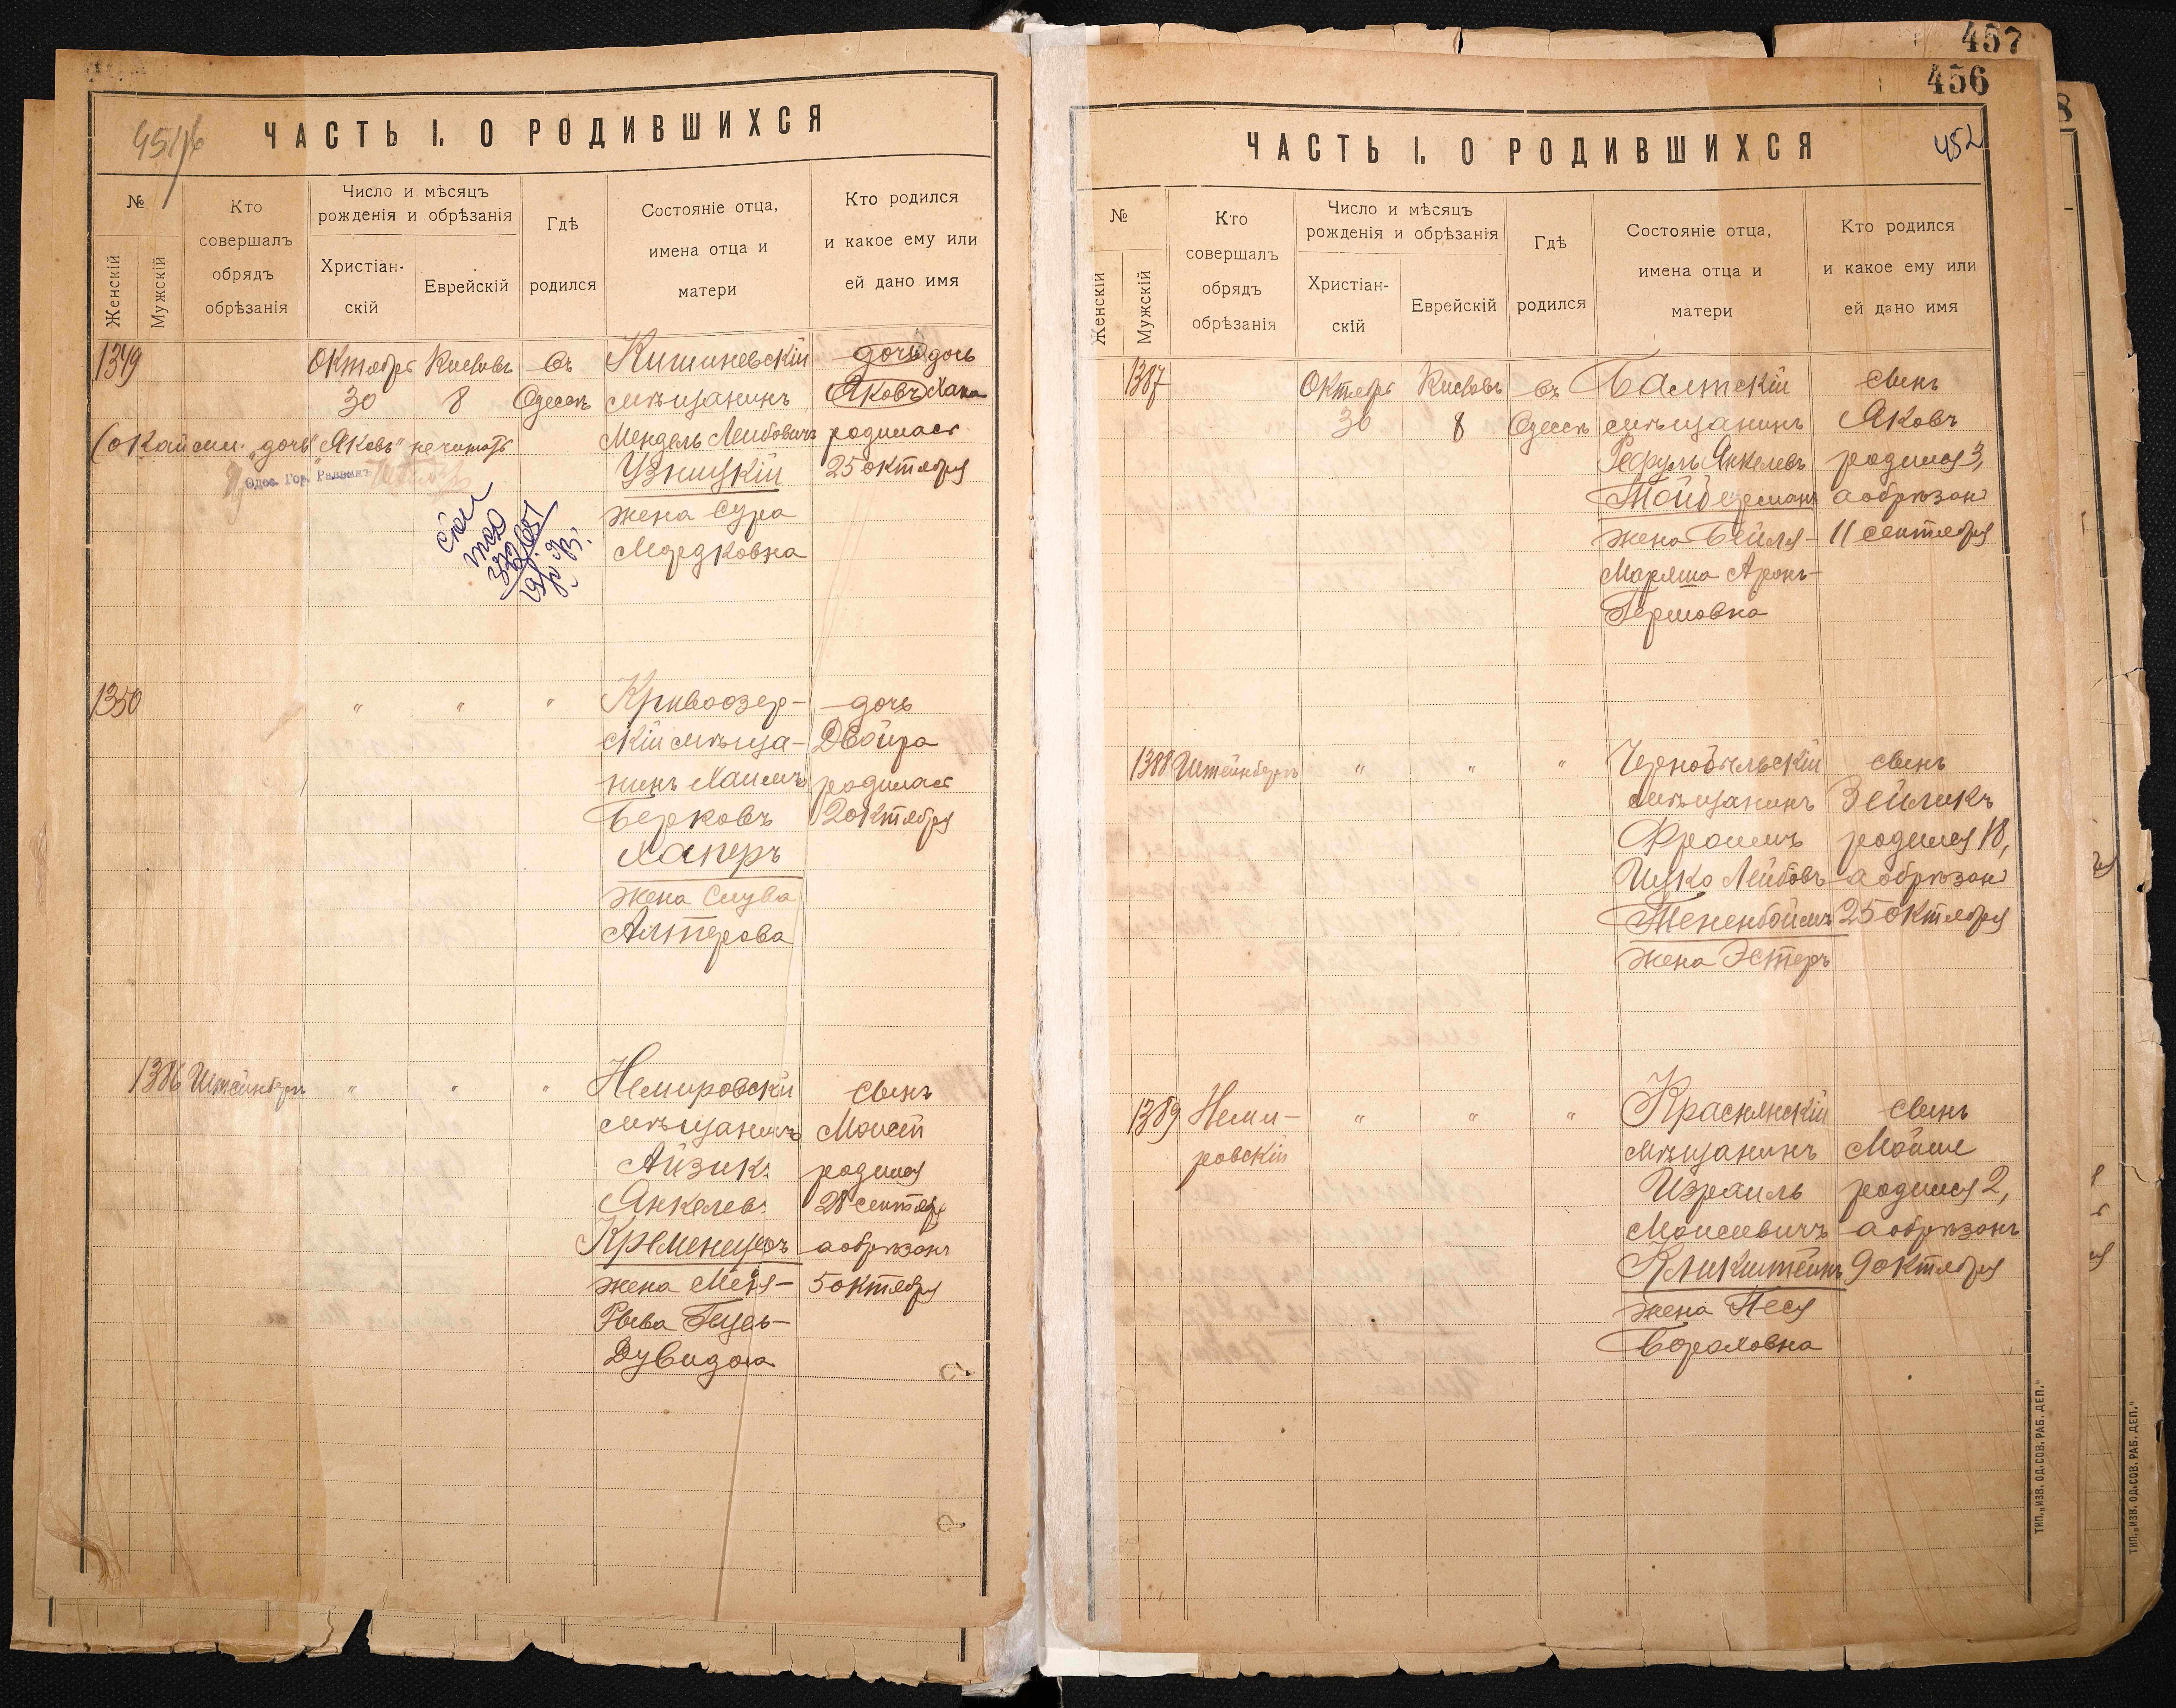 457
456
ЧАСТЬ I. О РОДИВШИХСЯ
№
Женскій
Мужскій
Кто
совершалъ
обрядъ
обрѣзанія
Число и мѣсяцъ
рожденія и обрѣзанія
Христіан-
скій
Еврейскій
Гдѣ
родился
Состояніе отца,
имена отца и
матери
Кто родился
и какое ему или
ей дано имя
1349
Октября
30
Кислевъ
8
въ
Одессѣ
Кишиневскій
мѣщанинъ
Мендель Лейбовичъ
Узницкій
жена Сура
Мордковна
дочь дочь
Яковъ Хана
родилась
25 октября
(окайми. „дочь“ „Яковъ“ нечитать
Одес. Гор. Раввинъ
1350
" " "
Кривоозер-
скій мѣща-
нинъ Хаимъ
Берковъ
Хаперъ
жена Слува
Алтерова
дочь
Двойра
родилась
2 октября
1386 Штейнбергъ
" " "
Немировскій
мѣщанинъ
Айзикъ
Янкелев.
Кременецеръ
жена Меня-
Рыва Гецель-
Дувидова
сынъ
Моисей
родился
28 сентября
а обрѣзанъ
5 октября
ЧАСТЬ I. О РОДИВШИХСЯ
452
№
Женскій
Мужскій
Кто
совершалъ
обрядъ
обрѣзанія
Число и мѣсяцъ
рожденія и обрѣзанія
Христіан-
скій
Еврейскій
Гдѣ
родился
Состояніе отца,
имена отца и
матери
Кто родился
и какое ему или
ей дано имя
1387
Октября
30
Кислевъ
8
въ
Одессѣ
Балтскій
мѣщанинъ
Рефулъ Янкелевъ
Мойберманъ
жена Бейля-
Маряша Аронъ-
Гершовна
сынъ
Яковъ
родился 3,
а обрѣзанъ
11 сентября
1388 Штейнбергъ
" " "
Чернобыльскій
мѣщанинъ
Фроимъ
Ицко Лейбовъ
Тененбоймъ
жена Эстеръ
сынъ
Зейликъ
родился 18,
а обрѣзанъ
25 октября
1389 Неми-
ровскій
" " "
Краснянскій
мѣщанинъ
Израиль
Моисеевичъ
Кликштейнъ
жена Песя
Бораховна
сынъ
Мойше
родился 2,
а обрѣзанъ
9 октября
ТИП. „ИЗВ. ОД. СОВ. РАБ. ДЕП.“
ТИП. „ИЗВ. ОД. СОВ. РАБ. ДЕП.“